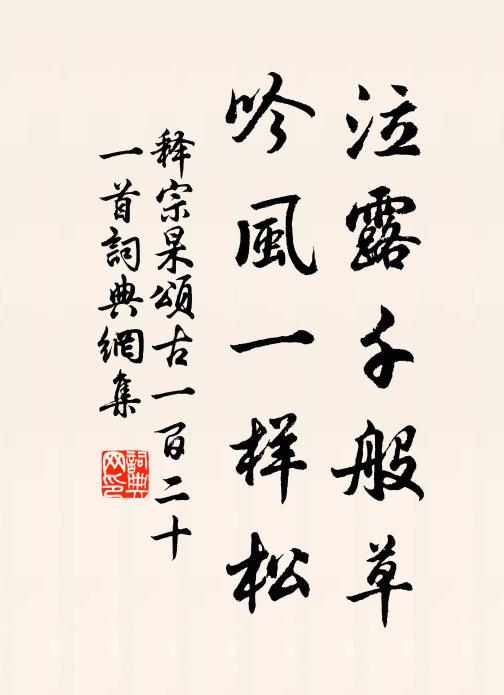 泣露千般草
吟風一样松
释宗杲頌古一百二十
一首詞典網集
詞典
网印